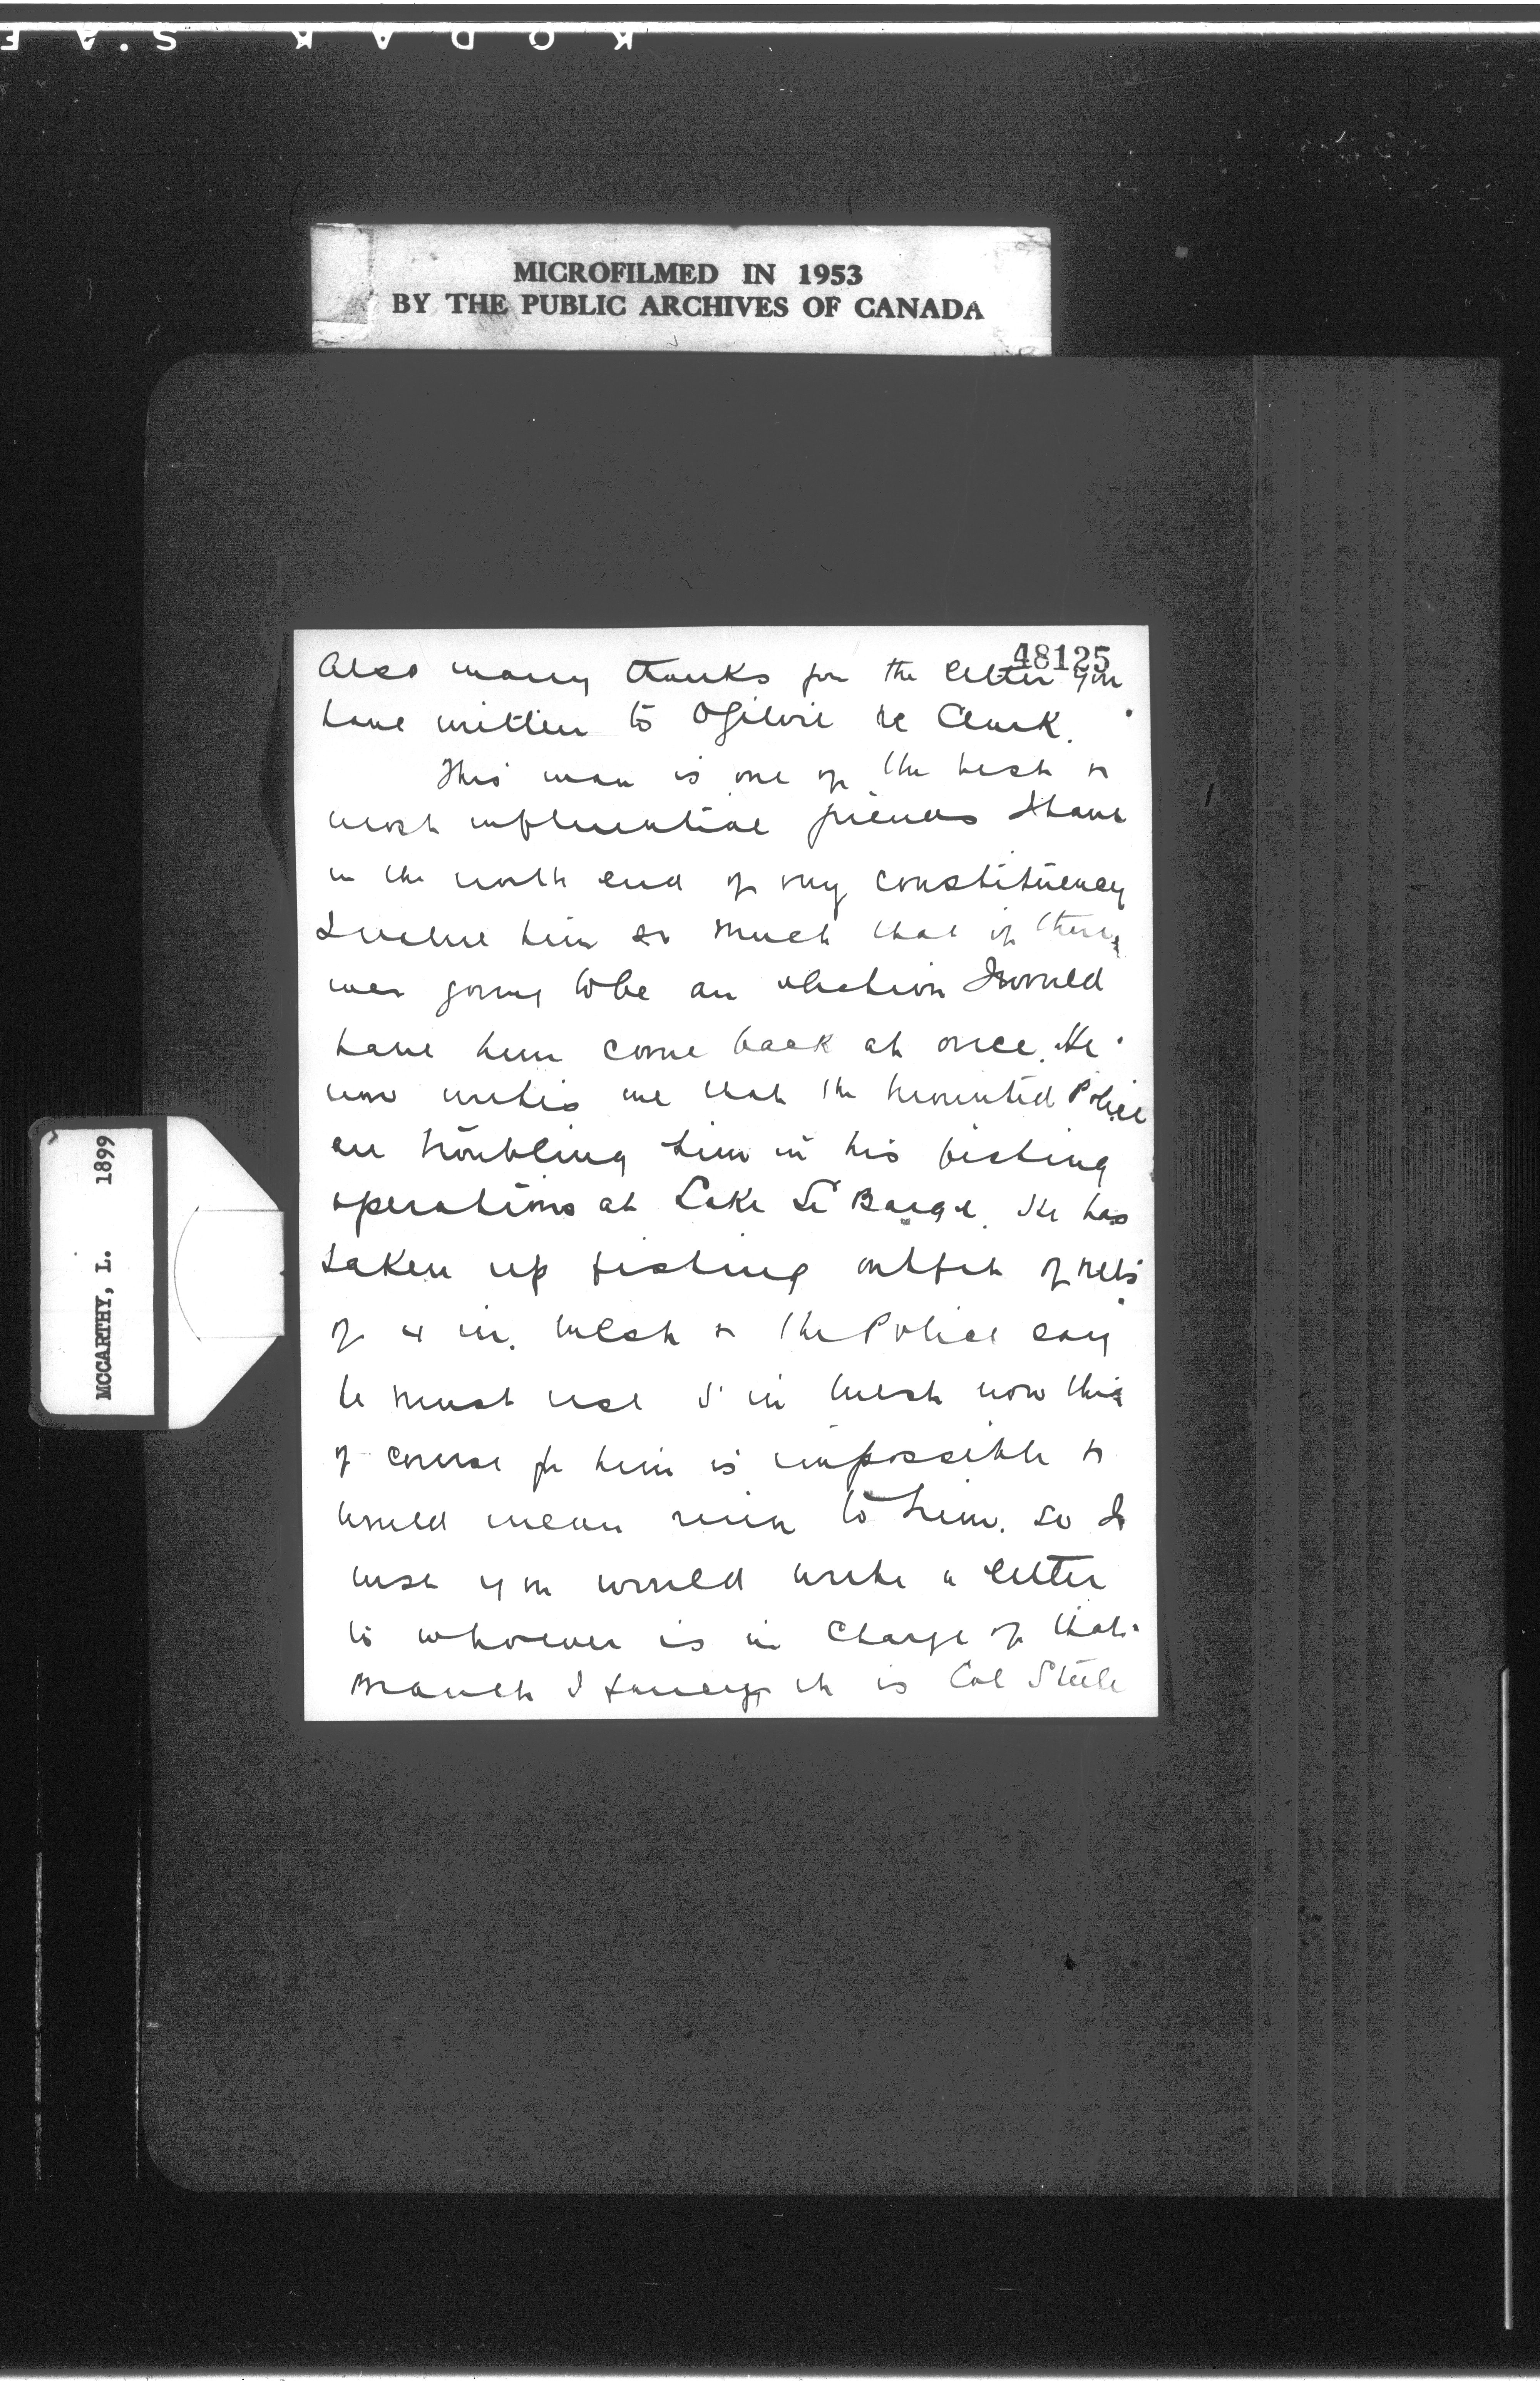 KODAK S.A.F
MICROFILMED IN 1953
BY THE PUBLIC ARCHIVES OF CANADA
48125
Also many thanks for the letter you
have written to Ogilvie re Clark.
This man is one of the best &
most influential friends I have
in the north end of my constituency
I value him so much that if there
was going to be an election I would
have him come back at once. He
now writes me that the Mounted Police
are troubling him in his fishing
operations at Lake Le Barge. He has
taken up fishing outfit of nets
of 4 in. mesh & the Police say
he must use 5 in mesh now this
of course for him is impossible &
would mean ruin to him. So I
wish you would write a letter
to whoever is in charge of that
Branch I fancy it is Col Steele
MCCARTHY, L. 1899